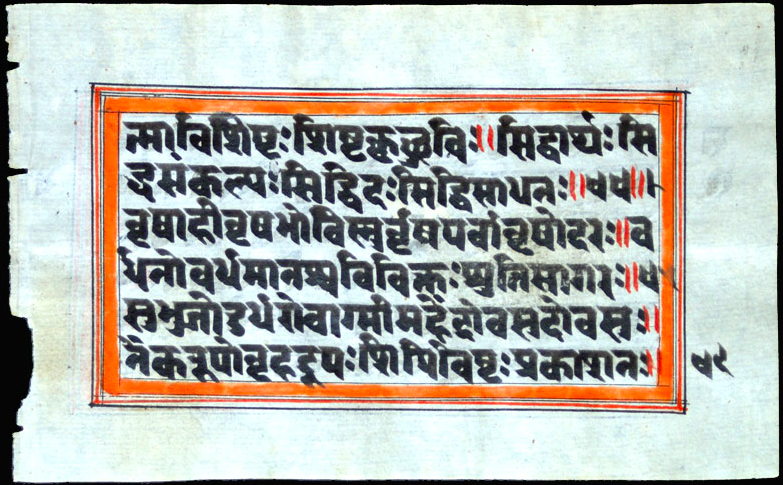 त्मा विशिष्टः शिष्टकृछुचिः॥ सिद्धार्थः सि
द्धसंकल्पः सिद्धिदः सिद्धिसाधनः॥
वृषाही वृषभो विस्नुर्वृषपर्वा वृषोदरः॥ व
र्धनो वर्धमानश्च विविक्तः श्रुतिसागरः॥
सुभुजो दुर्धरो वाग्मी महेंद्रो वसदो वसुः॥
नैकरूपो बृहद्रूपः शिपिविष्टः प्रकाशनः॥